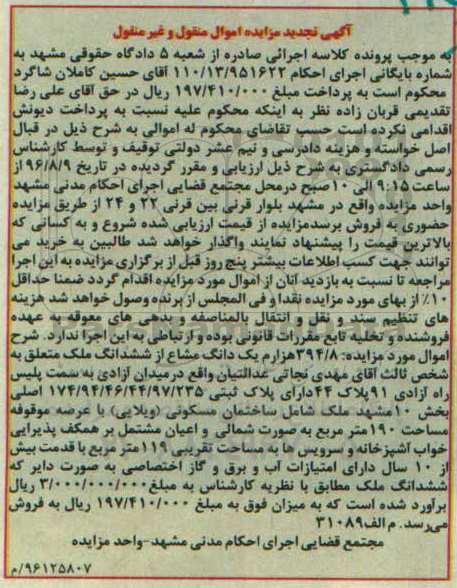 آگهی تجدید مزایده اموال منقول و غیر منقول
به موجب پرونده کلاسه اجرائی صادره از شعبه ۵ دادگاه حقوقی مشهد به
شماره بایگانی اجرای احکام ۱۱۰/۱۳/۹۵۱۶۲۲ آقای حسین کاملان شاگرد
محکوم است به پرداخت مبلغ ۱۹۷/۴۱۰/۰۰۰ ریال در حق آقای علی رضا
تقدیمی قربان زاده نظر به اینکه محکوم علیه نسبت به پرداخت دیونش
اقدامی نکرده است حسب تقاضای محکوم له اموالی به شرح ذیل در قبال
اصل خواسته و هزینه دادرسی و نیم عشر دولتی توقیف و توسط کارشناس
رسمی دادگستری به شرح ذیل ارزیابی و مقرر گردیده در تاریخ ۹۶/۸/۹ از
ساعت ۹:۱۵ الی ۱۰ صبح درمحل مجتمع قضایی اجرای احکام مدنی مشهد
واحد مزایده واقع در مشهد بلوار قرنی بین قرنی ۲۲ و ۲۴ از طریق مزایده
حضوری به فروش برسدمزایده از قیمت ارزیابی شده شروع و به کسانی که
بالاترین قیمت را پیشنهاد نمایند واگذار خواهد شد طالبین به خرید می
توانند جهت کسب اطلاعات بیشتر پنج روز قبل از برگزاری مزایده به این اجرا
مراجعه تا نسبت به بازدید آنان از اموال مورد مزایده اقدام گردد ضمنا حداقل
۱۰٪ از بهای مورد مزایده نقدا و فی المجلس از برنده وصول خواهد شد هزینه
های تنظیم سند و نقل و انتقال بالمناصفه و بدهی های معوقه به عهده
فروشنده و تخلیه تابع مقررات قانونی بوده و ارتباطی به این اجرا ندارد. شرح
اموال مورد مزایده: ۳۹۴/۸هزارم یک دانگ مشاع از ششدانگ ملک متعلق به
شخص ثالث آقای مهدی نجاتی عدالتیان واقع درمیدان آزادی به سمت پلیس
راه آزادی ۹۱پلاک ۴۴دارای پلاک ثبتی ۱۷۴/۹۴/۴۶/۴۴/۹۷/۲۳۵ اصلی
بخش ۱۰مشهد ملک شامل ساختمان مسکونی (ویلایی) با عرصه موقوفه
مساحت ۱۹۰متر مربع به صورت شمالی و اعیان مشتمل بر همکف پذیرایی
خواب آشپزخانه و سرویس ها به مساحت تقریبی ۱۱۹متر مربع با قدمت بیش
از ۱۰ سال دارای امتیازات آب و برق و گاز اختصاصی به صورت دایر که
ششدانگ ملک مطابق با نظریه کارشناس به مبلغ۳/۰۰۰/۰۰۰/۰۰۰ ریال
برآورد شده است که به میزان فوق به مبلغ ۱۹۷/۴۱۰/۰۰۰ ریال به فروش
می‌رسد. م الف۳۱۰۸۹
مجتمع قضایی اجرای احکام مدنی مشهد-واحد مزایده
۹۶۱۲۵۸۰۷/م